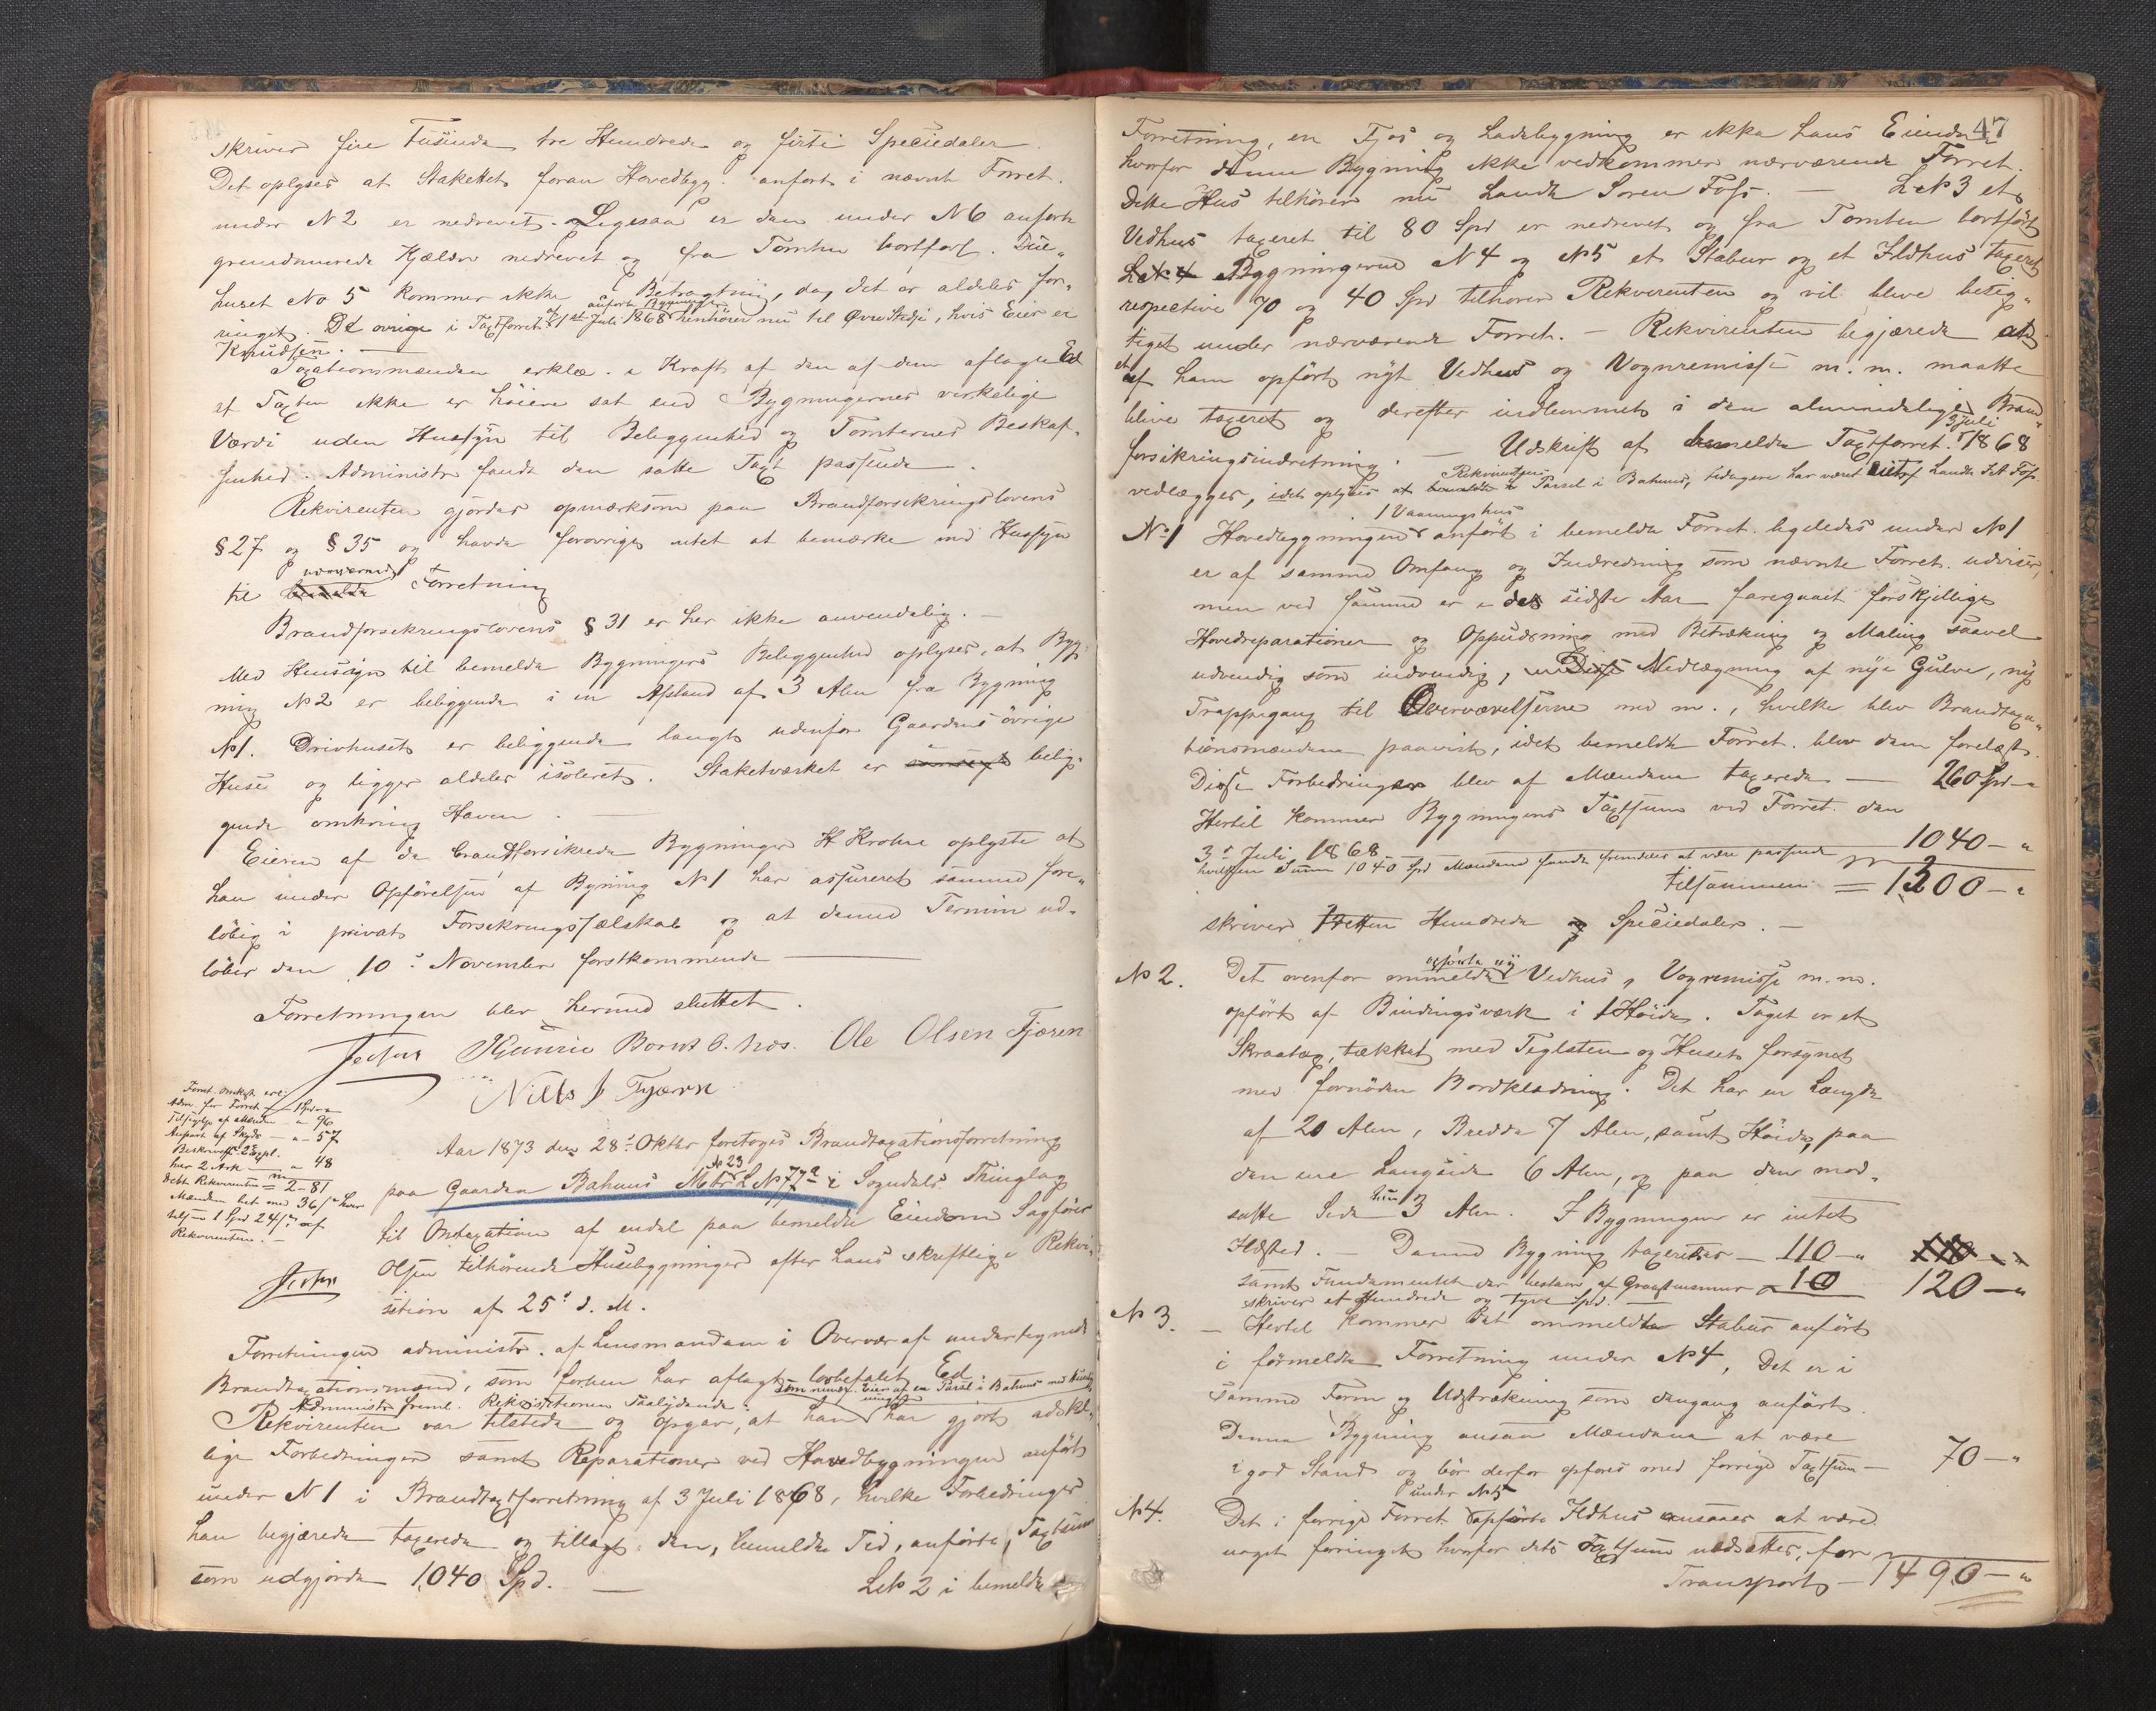 skriver fire Tusinde tre Hundrede og firti Speciedaler.
Det oplyses at Stakettet foran Hovedbygg. anført i nævnt Forret.
under N 2 er nedrevet. Ligesaa er den under N 6 anførte
grundmurede Kjælder nedrevet og fra Tomten bortført.
huset No 5 kommer ikke i Betragtning, da det er aldeles for-
anførte Bygninger
ringet. De øvrige i Taxtforret. af 1ste Juli 1868 henhører nu til Øvre Stedje, hvis Eier er
Knudsen.
Taxationsmændene erklæ. i Kraft af den af dem aflagte Ed
at Taxten ikke er høiere sat end Bygningernes virkelige
Værdi uden Hensyn til Beliggenhed og Tomternes Beskaf-
fenhed. Administr fandt den satte Taxt passende.
Rekvirenten gjordes opmærksom paa Brandforsikringslovens
§ 27 og § 35 og havde forøvrigt intet at bemærke med Hensyn
nærværende
til bemeldte Forretning
Brandforsikringslovens § 31 er her ikke anvendelig. —
Med Hensyn til bemeldte Bygningers Beliggenhed oplyses, at Byg-
ning N 2 er beliggende i en Afstand af 3 Alen fra Bygning
N 1. Drivhuset er beliggende langt udenfor Gaardens øvrige
Huse og ligger aldeles isoleret. Staketværket er belig-
gende omkring Haven. —
Eieren af de brandforsikrede Bygninger H Krohn oplyste at
han under Opførelsen af Bygning N 1 har assureret samme fore-
løbig i privat Forsikringsselskab og at denne Termin ud-
løber den 10de November førstkommende —
Forretningen blev hermed sluttet.
Ole Olsen Fjæren
Nills J Fjæren
Forret. Omkost. erl.
Adm for Forret — 1 Spd
Tilsigelse af Mænden — 96
Anpart af Skyds — 57
Beskrivelse 2 Expl.
hver 2 Ark — 48
Debt Rekvirenten = 2-81
Mænden bet. med 36 s hver
tils. 1 Spd 24 s af
Rekvirenten. —
Aar 1873 den 28de Oktbr foretoges Brandtaxationsforretning
N 23
paa Gaarden Bahuus Mtr L N 77a i Sogndals Thinglag
til Omtaxation af endel paa bemeldte Eiendom Sagfører
Olsen tilhørende Husebygninger efter hans skriftlige Rekvi-
sition af 25de d. M.
Forretningen administr. af Lensmanden i Overvær af undertegnede
Brandtaxationsmænd, som forhen har aflagt lovbefalet Ed.
Administr freml. Rekvisitionen saalydende:
som nuvær. Eier af en Parsel i Bahuus med Husebyg-
ninger
Rekvirenten var tilstede og opgav, at han har gjort adskil-
lige Forbedringer samt Reparationer ved Hovedbygningen anført
under N 1 i Brandtaxtforretning af 3 Juli 1868, hvilke Forbedringer
han begjærede taxerede og tillagt den, bemeldte Tid, anførte Taxtsum
som udgjorde 1040 Spd. — LN 2 i bemeldte
47
Forretning, en Fjøs og Ladebygning er ikke hans Eiendom
hvorfor denne Bygning ikke vedkommer nærværende Forret.
Dette Hus tilhører nu Landh Søren Foss. — LN 3 et
Vedhus taxeret til 80 Spd er nedrevet og fra Tomten bortført
Bygningerne N 4 og N 5 et Stabur og et Ildhus taxeret
respective 70 og 40 Spd tilhører Rekvirenten og vil blive besig-
tiget under nærværende Forret. — Rekvirenten begjærede at
et
af ham opført nyt Vedhus og Vognremisse m. m. maatte
blive taxeret og derefter indlemmet i den almindelige Brand-
3 Juli
forsikringsindretning. — Udskrift af bemeldte Taxtforret. 1868
Rekvirentens
vedlægges, idet oplyses at bemeldte Parsel i Bahuus, tidligere har været eiet af Landh Foss.
1 Vaaningshus
No 1 Hovedbygningen anført i bemeldte Forret. ligeledes under N 1
er af samme Omfang og Indredning som nævnte Forret. udviser,
men ved samme er i det sidste Aar foregaaet forskjellige
Hovedreparationer og Oppudsning med Betrækning og Maling saavel
udvendig som indvendig, Nedlægning af nye Gulve, ny
Trappegang til Oververelserne med m., hvilke blev Brandtaxa-
tionsmændene paavist, idet bemeldte Forret. blev dem forelæst.
Disse Forbedringer blev af Mændene taxerede — 260 Spd -
Hertil kommer Bygningens Taxtsum ved Forret. den
3de Juli 1868 — 1040 - "
hvilken Sum 1040 Spd Mændene fandt fremdeles at være passende
tilsammen = 1300 - "
skriver Tretten Hundrede Speciedaler. —
opførte ny
N 2. Det ovenfor ommeldte Vedhus, Vognremisse m. m.
opført af Bindingsværk i 1 Høide. Taget er et
Skraatag, tækket med Teglsten og Huset forsynet
med fornøden Bordklædning. Det har en Længde
af 20 Alen, Bredde 7 Alen, samt Høide, paa
den ene Langside 6 Alen, og paa den mod-
kun
satte Side 3 Alen. I Bygningen er intet
Ildsted. — Denne Bygning taxeredes — 110 - "
samt Fundamentet der bestaar af Graastensmur — 10 120 - "
skriver et Hundrede og tyve Spd. —
N 3. — Hertil kommer det ommeldte Stabur anført
i førmeldte Forretning under N 4, Det er i
samme Form og Udstrækning som dengang anført.
Denne Bygning ansaa Mændene at være
i god Stand og bør derfor opføres med forrige Taxtsum — 70 - "
under N 5
N 4. Det i forrige Forret opførte Ildhus ansaaes at være
noget forringet hvorfor dets Taxtsum nedsættes, for
Transport — 1490 - "